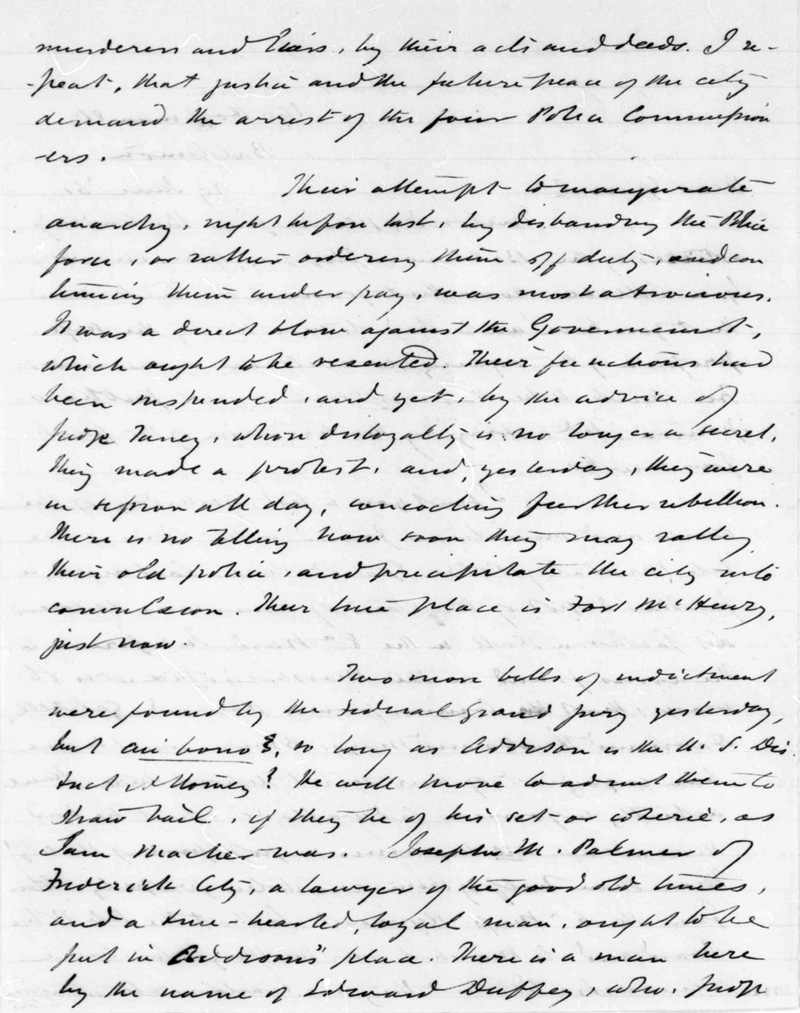 murderers and liars, by their acts and deeds. I re-
-peat, that justice and the future peace of the city
demand the arrest of the four Police Commission
ers.
Their attempt to inaugurate
anarchy, night before last, by disbanding the Police
force, or rather ordering them off duty, and con
tinuing them under pay, was most atrocious.
It was a direct blow against the Government,
which ought to be resented. Their functions had
been suspended, and yet, by the advice of
Judge Taney, whose disloyalty is no longer a secret,
they made a protest, and, yesterday, they were
in session all day, concocting further rebellion.
There is no telling how soon they may rally
their old police, and precipitate the city into
convulsion. Their true place is Fort McHenry,
just now
Two more bills of indictment
were found by the Federal Grand jury yesterday,
but cui bono?, so long as Addison is the U. S. Dis
trict Attorney? He will move to admit them to
straw bail, if they be of his set or coterie, as
Sam Mactier was. Joseph M. Palmer of
Frederick City, a lawyer of the good old times,
and a true-hearted, loyal man, ought to be
put in Addison's place. There is a man here
by the name of Edward Duffey, who, Judge